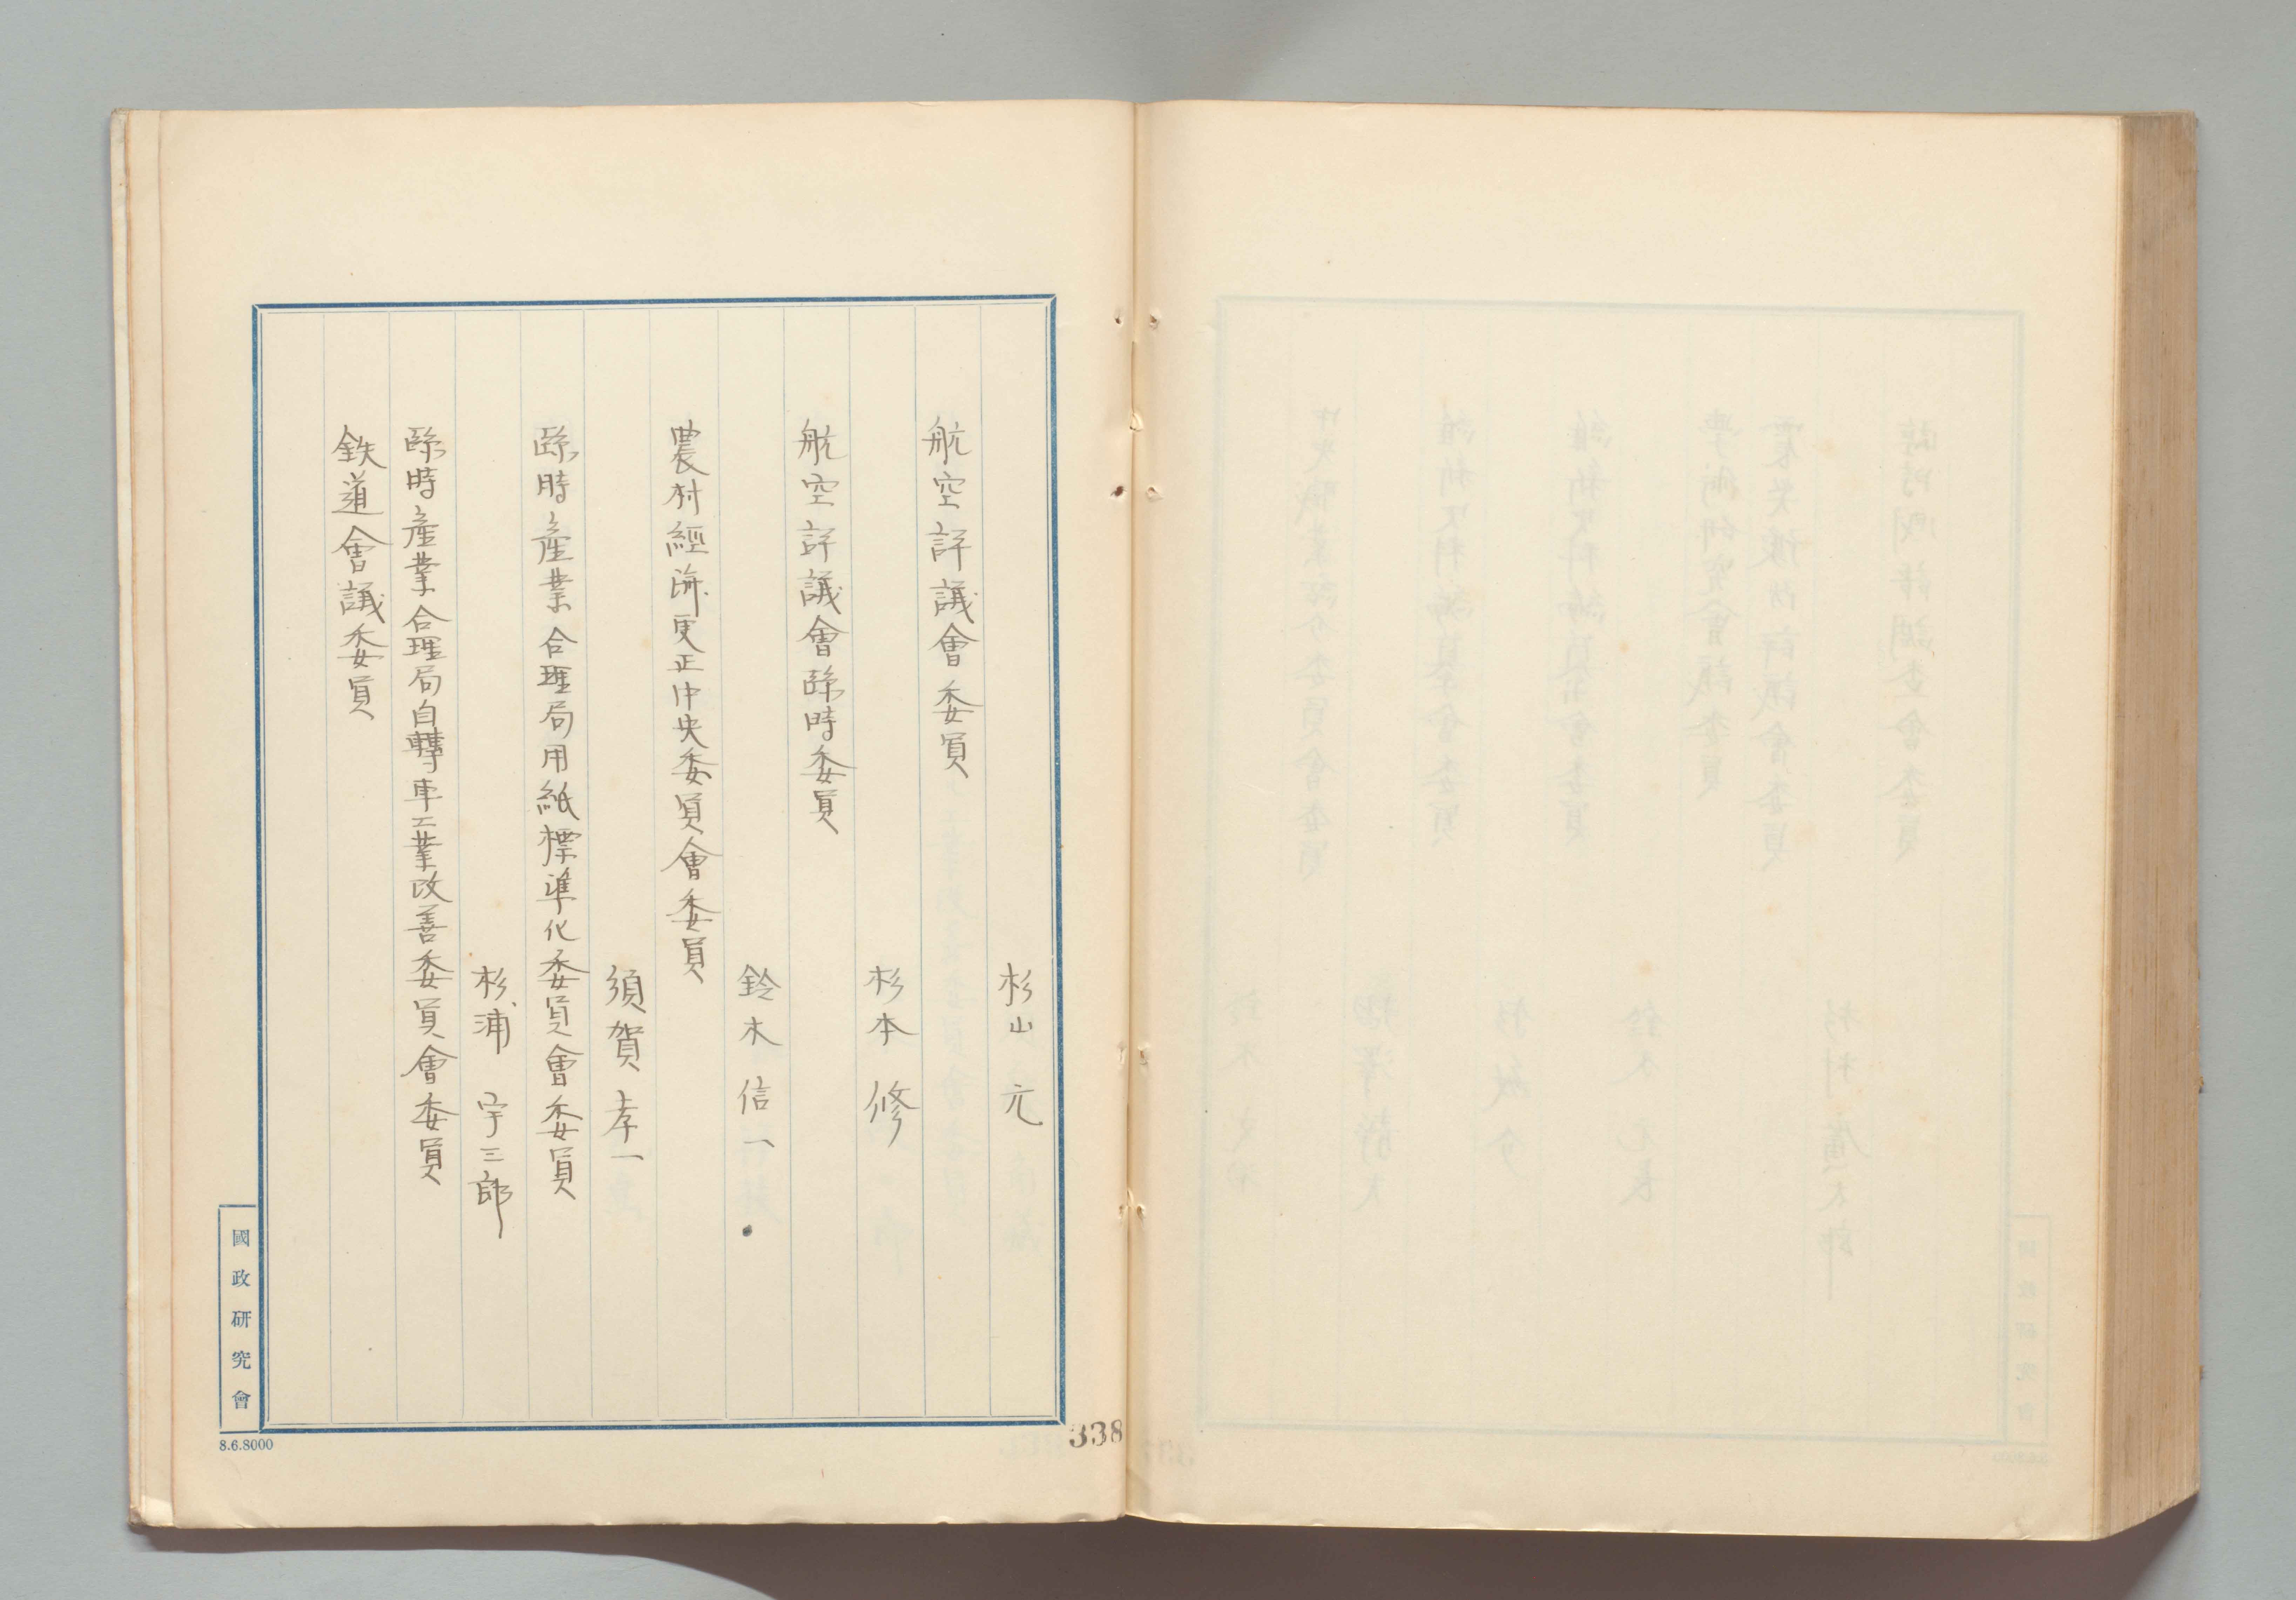 杉山元
航空評議會委員
杉本修
航空評議會臨時委員
鈴木信一
農村經濟更正中央委員會委員
須賀孝一
臨時產業合理局用紙標準化委員會委員
杉浦宇三郎
臨時產業合理局自轉車工業改善委員會委員
鉄道會議委員
國政研究會
8.6.8000
338